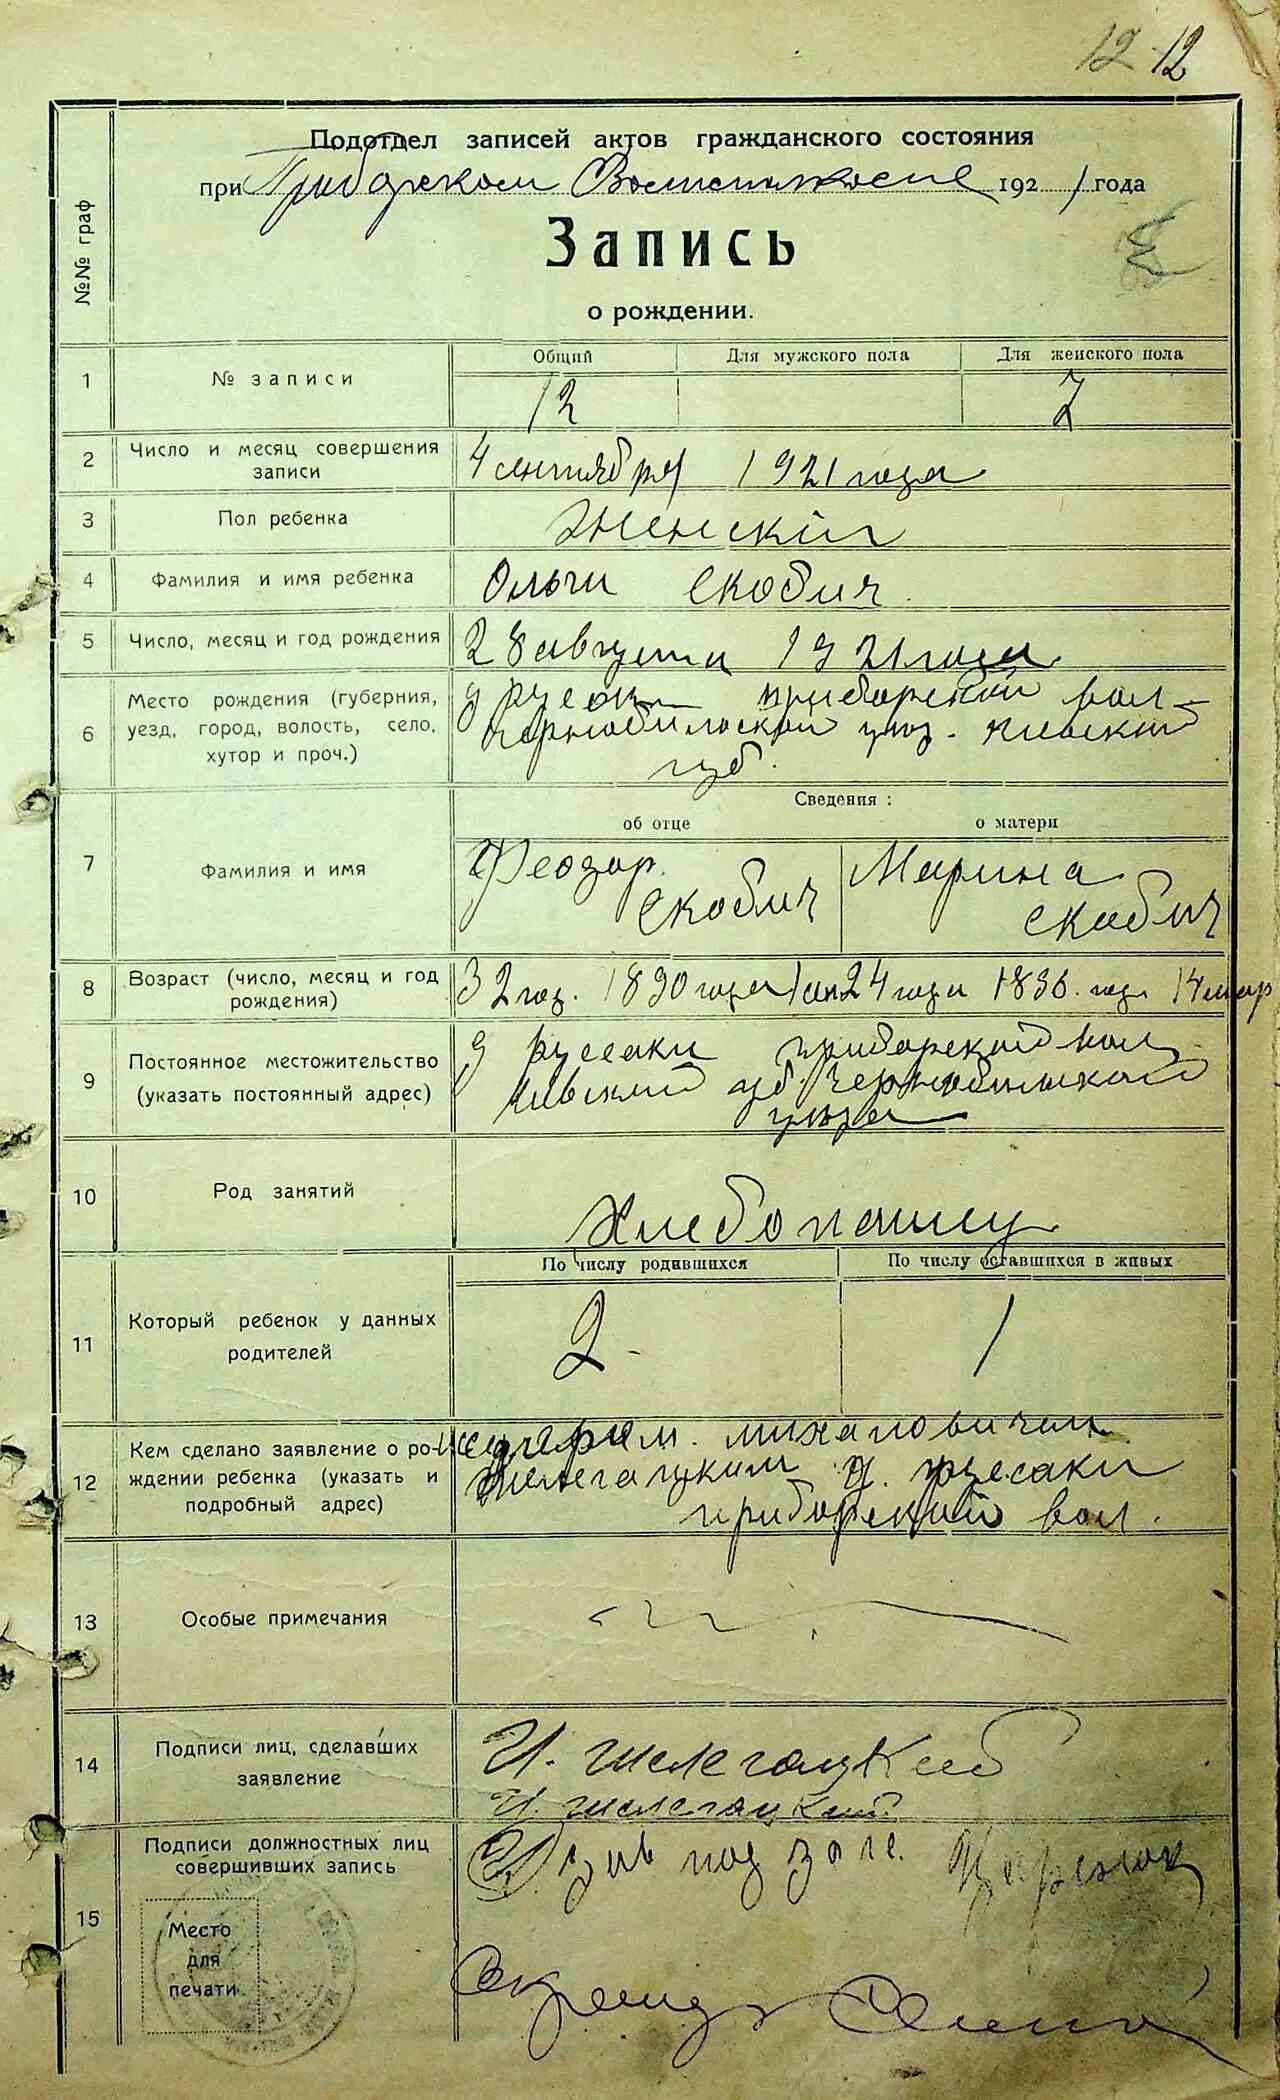 12 12
Подотдел записей актов гражданского состояния
при Приборском 1921 года
Запись
о рождении.
№№ граф
Общий Для мужского пола Для женского пола
1 № записи 12 7
2 Число и месяц совершения 4 сентября 1921 года
записи
3 Пол ребенка женский
4 Фамилия и имя ребенка Ольги Скобич
5 Число, месяц и год рождения 28 августа 1921 года
6 Место рождения (губерния, д приборской вол
уезд, город, волость, село, уез. киевский
хутор и проч.) губ.
Сведения :
об отце о матери
7 Фамилия и имя Феодор Скобич Марина Скобич
8 Возраст (число, месяц и год 32 год. 1890 года 24 года 1896 года 14 мар
рождения)
9 Постоянное местожительство д руссаки приборской вол
(указать постоянный адрес) губ.
уезда
10 Род занятий
По числу родившихся По числу оставшихся в живых
11 Который ребенок у данных 2 1
родителей
12 Кем сделано заявление о ро-
ждении ребенка (указать и д. руссаки
подробный адрес) приборской вол.
13 Особые примечания
14 Подписи лиц, сделавших И.
заявление И.
15 Подписи должностных лиц
совершивших запись
Место
для
печати